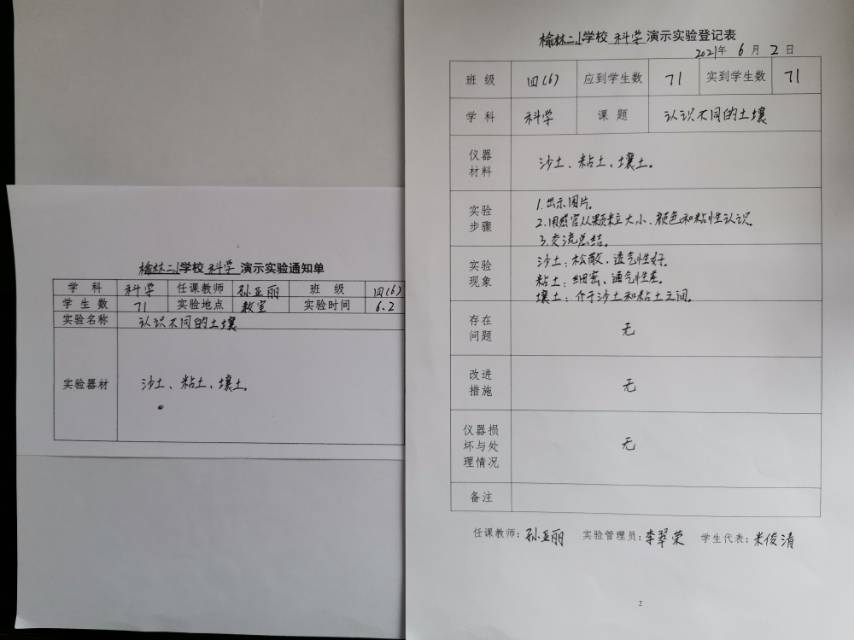 榆林二小学校科学演示实验通知单
学科 科学 任课教师 孙亚丽 班级 四(6)
学生数 71 实验地点 教室 实验时间 6.2
实验名称 认识不同的土壤
实验器材 沙土、粘土、壤土。
榆林二小学校科学演示实验登记表
2021年6月2日
班级 四(6) 应到学生数 71 实到学生数 71
学科 科学 课题 认识不同的土壤
仪器材料 沙土、粘土、壤土。
实验步骤
1.出示图片。
2.用感官从颗粒大小、颜色和粘性认识。
3.交流总结。
实验现象
沙土:松散、透气性好。
粘土:细密、通气性差。
壤土:介于沙土和粘土之间。
存在问题 无
改进措施 无
仪器损坏与处理情况 无
备注
任课教师:孙亚丽 实验管理员:李翠荣 学生代表:米俊清
2